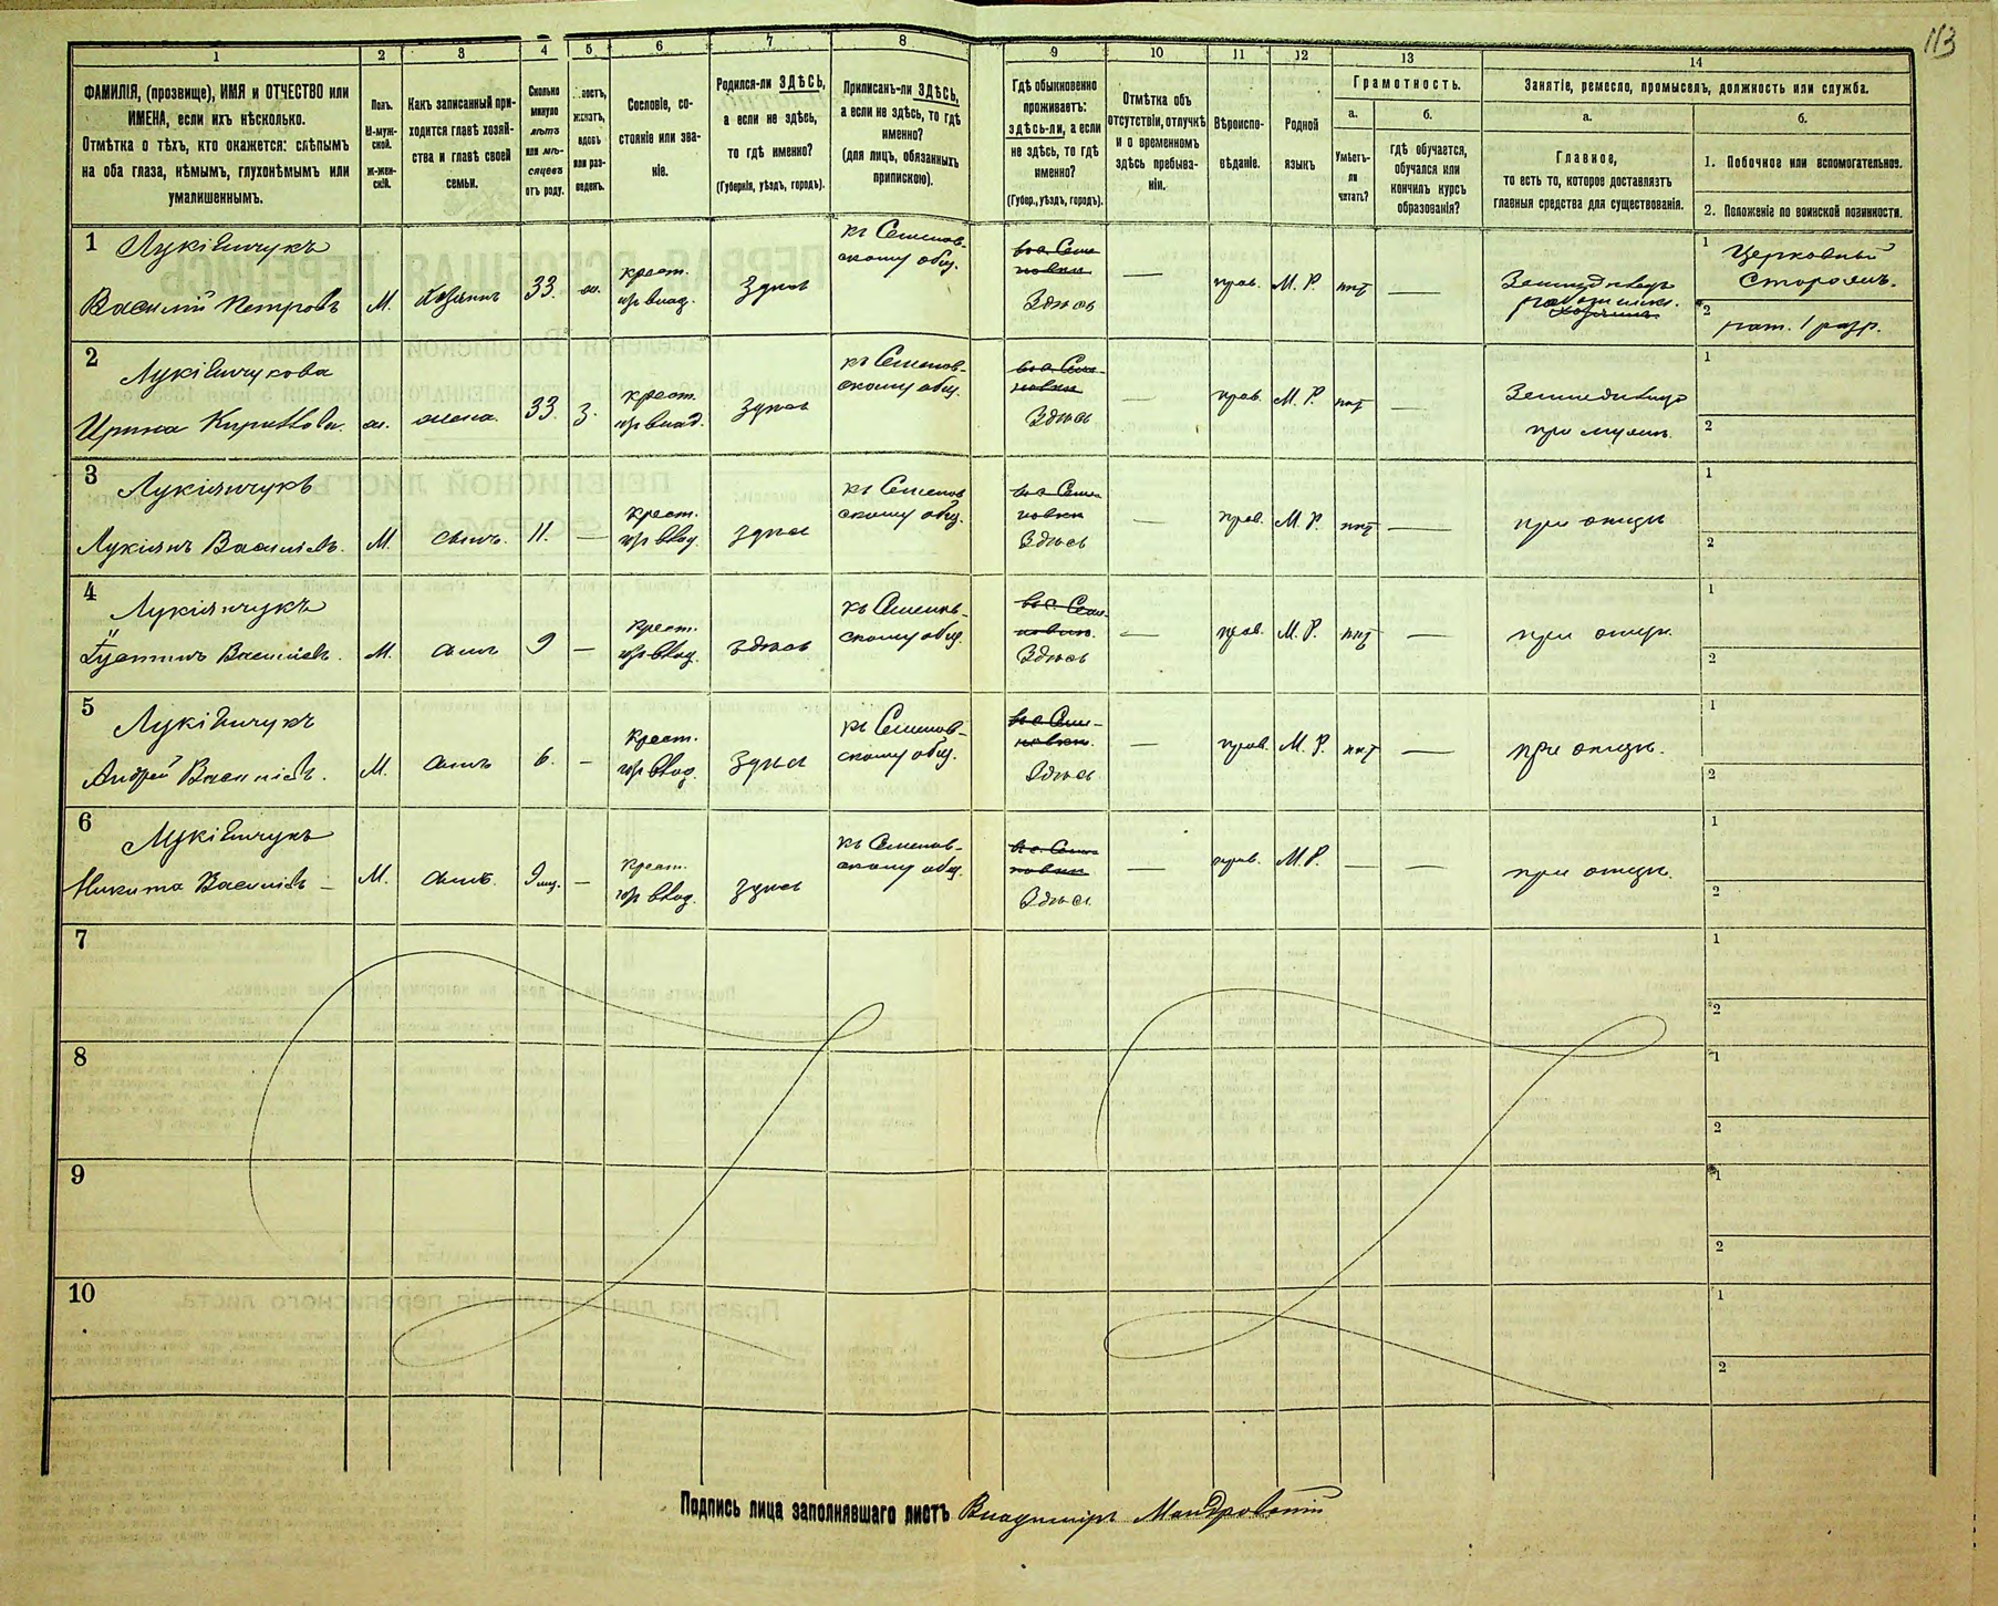 113
1
2
3
4
5
6
7
8
9
10
11
12
13
14
ФАМИЛІЯ, (прозвище), ИМЯ и ОТЧЕСТВО или
ИМЕНА, если ихъ нѣсколько.
Отмѣтка о тѣхъ, кто окажется: слѣпымъ
на оба глаза, нѣмымъ, глухонѣмымъ или
умалишеннымъ.
Полъ.
М-муж-
ской.
Ж-жен-
скій.
Какъ записанный при-
ходится главѣ хозяй-
ства и главѣ своей
семьи.
Сколько
минуло
лѣтъ
или мѣ-
сяцевъ
отъ роду.
женатъ,
вдовъ
или раз-
веденъ.
Сословіе, со-
стояніе или зва-
ніе.
Родился-ли ЗДѢСЬ,
а если не здѣсь,
то гдѣ именно?
(Губернія, уѣздъ, городъ).
Приписанъ-ли ЗДѢСЬ,
а если не здѣсь, то гдѣ
именно?
(для лицъ, обязанныхъ
припискою).
Гдѣ обыкновенно
проживаетъ:
здѣсь-ли, а если
не здѣсь, то гдѣ
именно?
(Губер., уѣздъ, городъ).
Отмѣтка объ
отсутствіи, отлучкѣ
и о временномъ
здѣсь пребыва-
ніи.
Вѣроиспо-
вѣданіе.
Родной
языкъ
Грамотность.
а.
Умѣетъ-
ли
читать?
б.
гдѣ обучается,
обучался или
кончилъ курсъ
образованія?
Занятіе, ремесло, промыселъ, должность или служба.
а.
Главное,
то есть то, которое доставляетъ
главныя средства для существованія.
б.
1. Побочное или вспомогательное.
2. Положеніе по воинской повинности.
1
Лукіянчукъ
Василій Петровъ
М.
Хозяинъ
33.
ж.
крест.
изъ влад.
Здѣсь
къ Семенов-
скому общ.
въ с. Семе
новки
Здѣсь
—
прав.
М. Р.
нѣт
—
Земледѣлецъ
хозяинъ
1
Церковный
Сторожъ.
2
рат. 1 разр.
2
Лукіянчукова
Ирина Кирилова.
ж.
жена.
33.
З.
крест.
изъ влад.
Здѣсь
къ Семенов-
скому общ.
въ с. Семе-
новки
Здѣсь
—
прав.
М. Р.
нѣт
—
Земледѣлица
при мужѣ.
1
2
3
Лукіянчукъ
Лукіянъ Васильевъ.
М.
сынъ.
11.
—
Крест.
изъ влад.
здѣсь
къ Семенов
скому общ.
въ с. Семе-
новки
Здѣсь
—
прав.
М. Р.
нѣт
—
при отцѣ
1
2
4
Лукіянчукъ
Іустинъ Васильевъ.
М.
сынъ
9
—
Крест.
изъ влад.
здѣсь
къ Семенов-
скому общ.
въ с. Семе-
новки.
Здѣсь
—
прав.
М. Р.
нѣт
—
при отцѣ.
1
2
5
Лукіянчукъ
Андрей Васильевъ.
М.
сынъ
6.
–
Крест.
изъ влад.
Здѣсь
къ Семенов-
скому общ.
въ с. Семе-
новки.
Здѣсь
—
прав.
М. Р.
нѣт
—
при отцѣ.
1
2
6
Лукіянчукъ
Никита Васильевъ –
М.
сынъ.
9 мц.
–
Крест.
изъ влад.
здѣсь
къ Семенов-
скому общ.
въ с. Семе-
новки
Здѣсь
—
прав.
М. Р.
—
—
при отцѣ.
1
2
7
1
2
8
1
2
9
1
2
10
1
2
Подпись лица заполнявшаго листъ Владиміръ Мандровскій